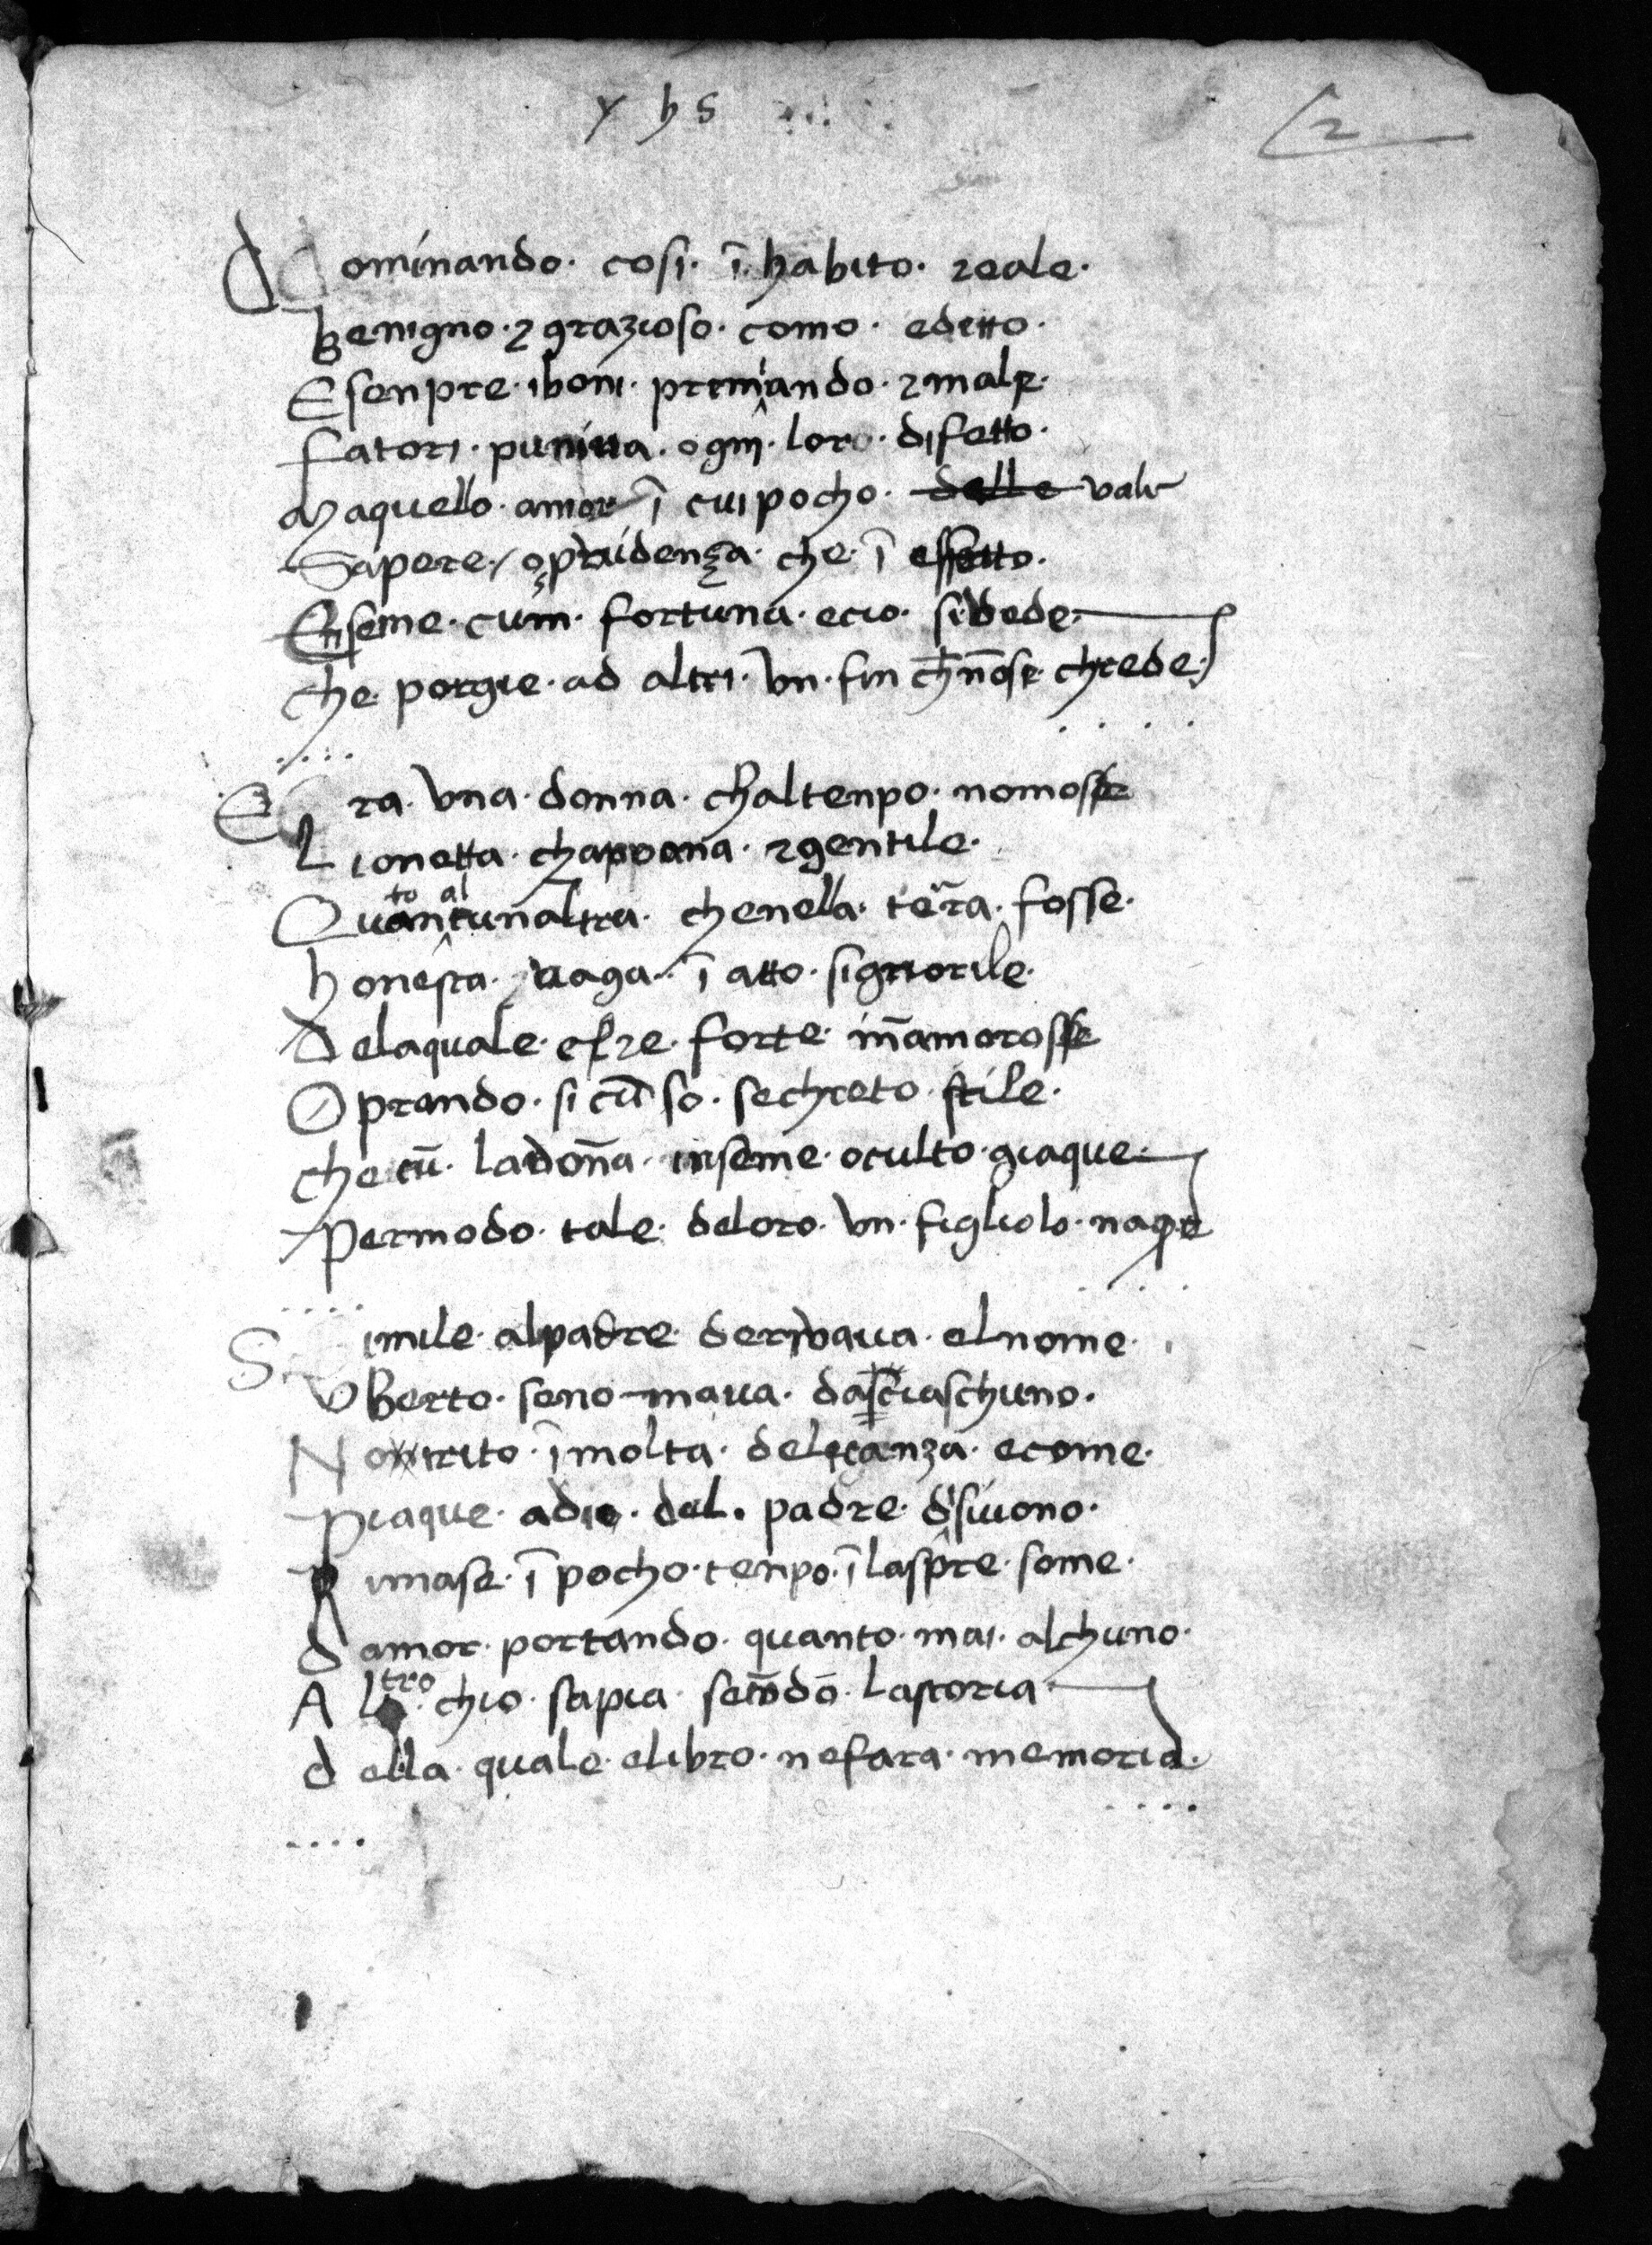 y h s
2
Dominando · cosi · ī habito · reale ·
benigno · ⁊ grazioso · como · editto ·
E senpre · iboni · premiando · ⁊ male ·
fatori · puniua · ogni · loro · difetto ·
Maquello · amor ī cui pocho · delle vale
Sapere / o prudenza · che · ī effetto ·
Enseme · cum · fortuna · ecio · si vede ·
che · porgie · ad altri · vn · fin ch̄ nōse · chrede ·
Era · vna · donna · ch̄altenpo · nomosse
Lionetta · chappoana · ⁊ gentile ·
Quantto al tunaltra · chenella · terra · fosse ·
honesta · vaga · ī atto · signiorile ·
delaquale · el re · forte · inn̄amorosse
Oprando · si cū so · sechreto · stile ·
che cū · ladon̄a · inseme · oculto · giaque ·
Permodo · tale · deloro · vn · figliolo · naque
Simile · alpadre · deriuaua · elnome ·
vberto · seno maua · dasciaschuno ·
Notrito · ī molta · delicanza · ecome ·
Piaque · adio · dal · padre · disiuono ·
Rimase · ī pocho · tenpo · ī laspre · some ·
damor · portando · quanto · mai · alchuno ·
Altro · chio · sapia · secōdo · lastoria
della · quale · elibro · nefara · memoria ·